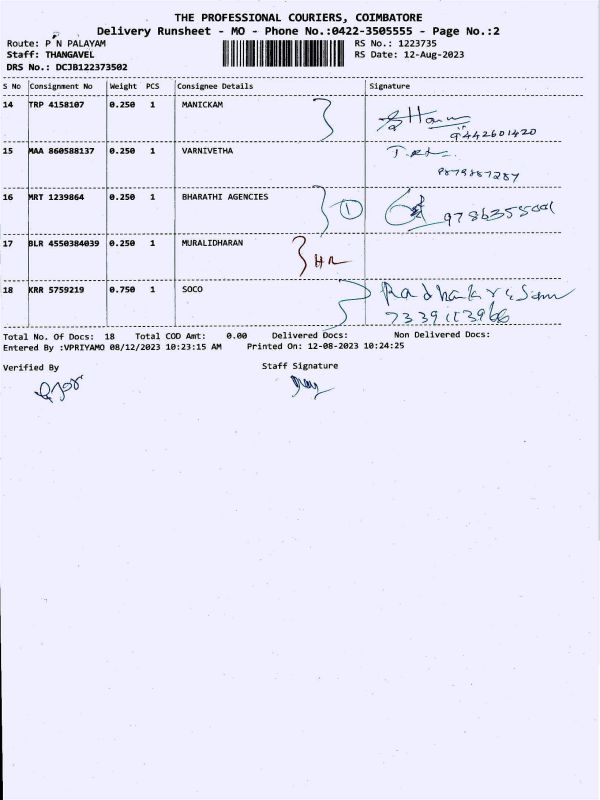 THE PROFESSIONAL COURIERS, COIMBATORE
Delivery Runsheet - MO - Phone No.:0422-3505555 - Page No.:2
Route: P N PALAYAM RS No.: 1223735
Staff: THANGAVEL RS Date: 12-Aug-2023
DRS No.: DCJB122373502
S No Consignment No Weight PCS Consignee Details Signature
14 TRP 4158107 0.250 1 MANICKAM
9442601420
15 MAA 860588137 0.250 1 VARNIVETHA
16 MRT 1239864 0.250 1 BHARATHI AGENCIES 1
17 BLR 4550384039 0.250 1 MURALIDHARAN
18 KRR 5759219 0.750 1 SOCO
Total No. Of Docs: 18 Total COD Amt: 0.00 Delivered Docs: Non Delivered Docs:
Entered By :VPRIYAMO 08/12/2023 10:23:15 AM Printed On: 12-08-2023 10:24:25
Verified By Staff Signature